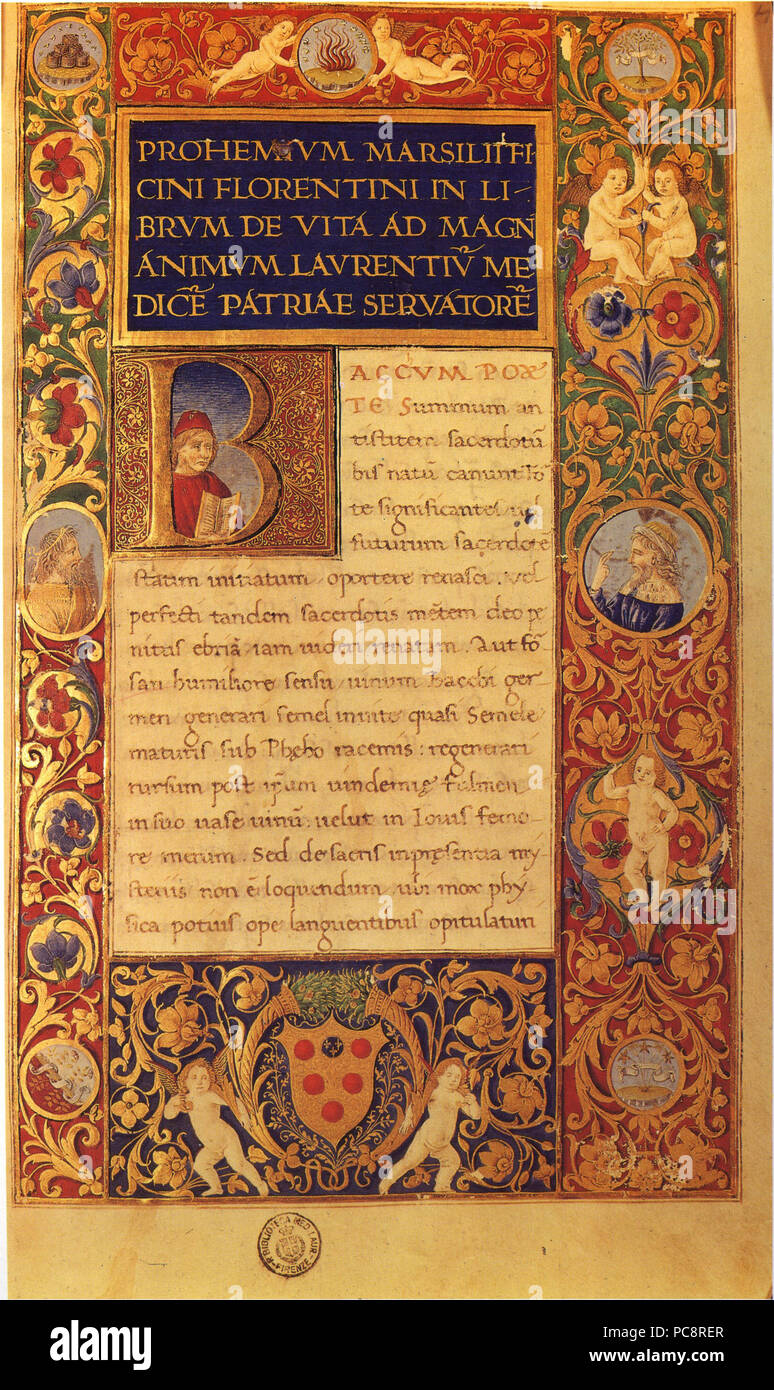 PROHEMIVM MARSILII FI
CINI FLORENTINI IN LI-
BRVM DE VITA AD MAGN
ANIMVM LAVRENTIV̄ ME
DICĒ PATRIAE SERVATORĒ
BACCVM POE
TE Summum an
tistitem sacerdotū
bis natū canunt fō
te significantes vel
futurum sacerdotē
statim initiatum oportere renasci. Vel
perfecti tandem sacerdotis mētem deo pe
nitus ebriā iam videri renatam. Aut fō-
san humiliore sensu vinum Bacchi ger-
men generari semel in vite quasi Semele
maturis sub Phębo racemis: regenerari
rursum post ipsum vindemię fulmen
in suo vase vinū: velut in Iovis femo-
re merum. Sed de sacris inpresentia my-
steriis non ē loquendum ubi mox phy-
sica potius ope languentibus opitulaturi
R. BIBLIOTECA MED. LAUR.
FIRENZE
alamy
alamy stock photo
PC8RER
www.alamy.com